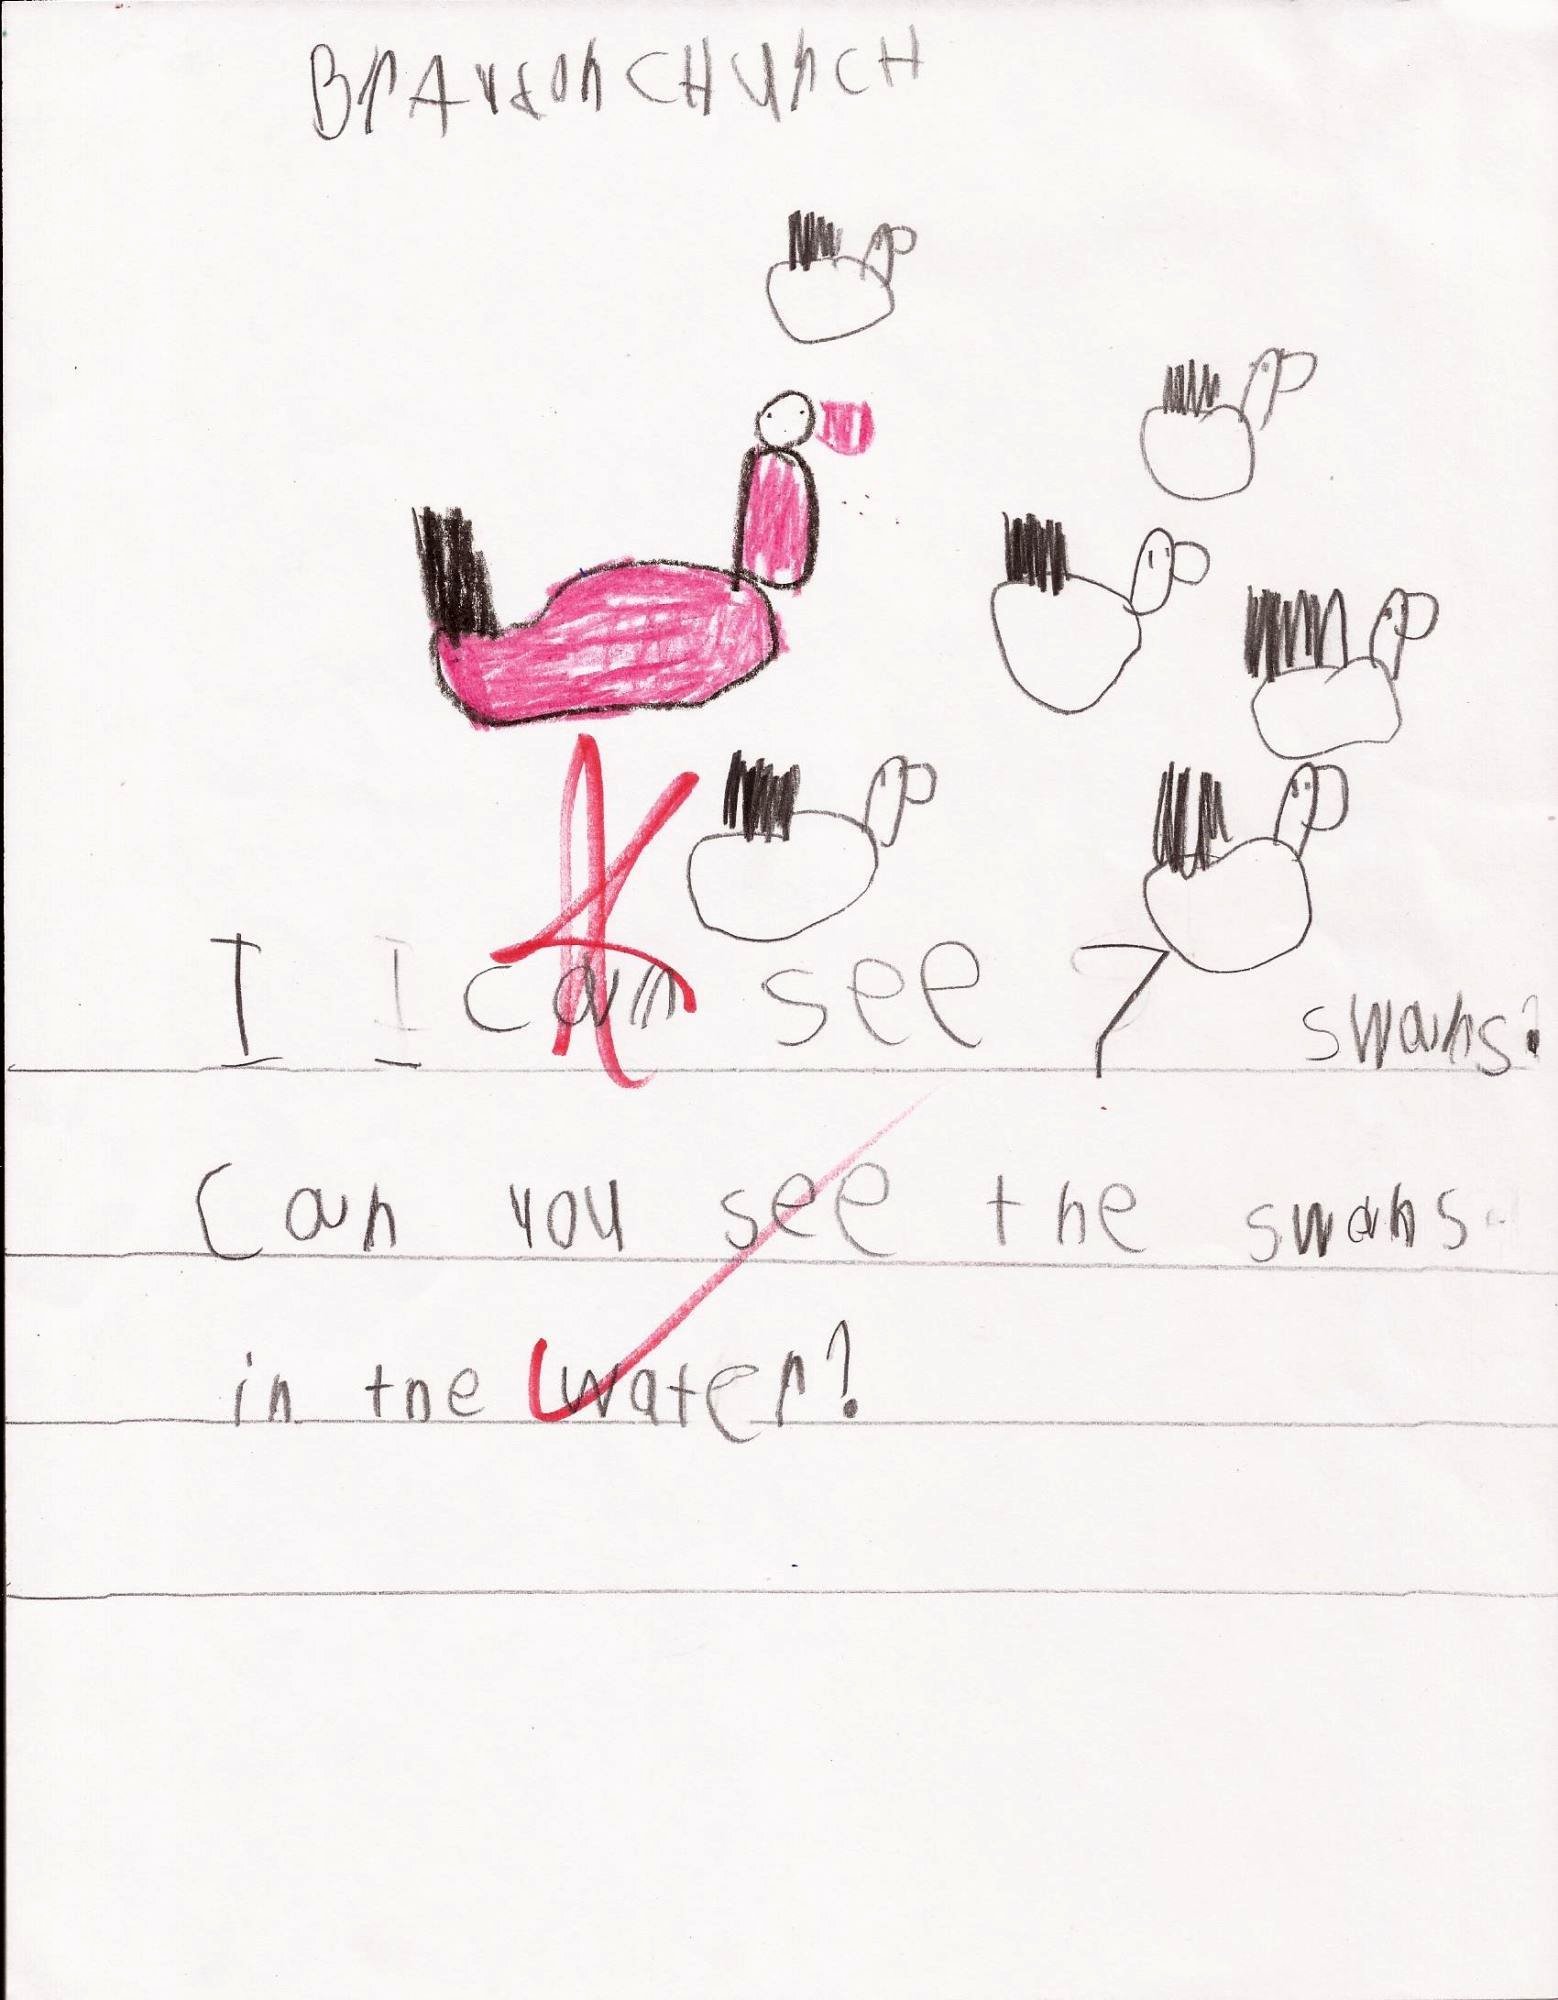 BrAydon CHUrCH
I I can see 7 swans?
Can you see the swans
in the water?